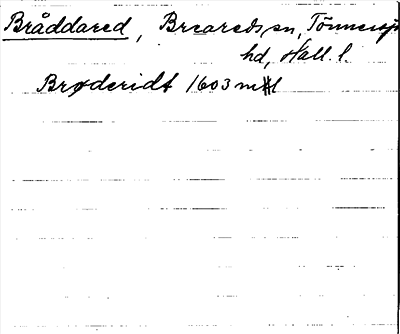 Bråddared, Breareds sn, Tönnersjö
hd, Hall. l.
Brøderidt 1603 mtl